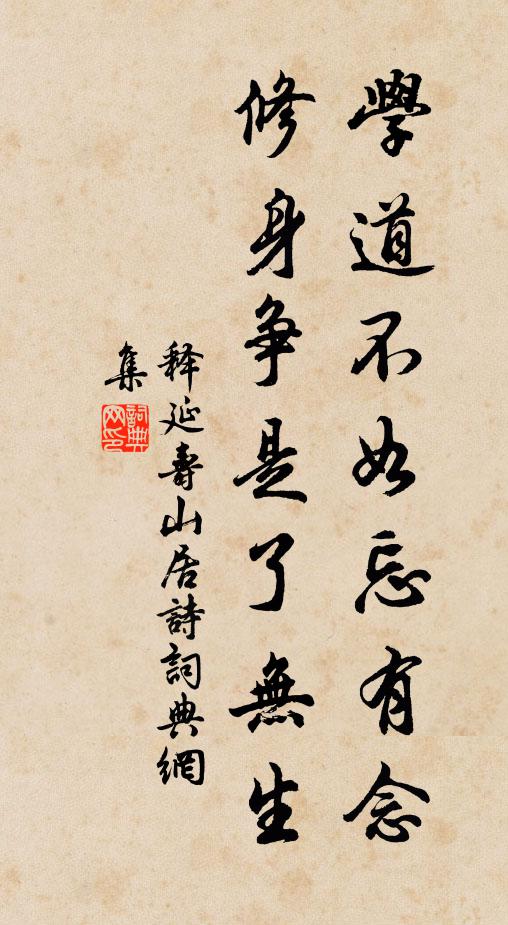 學道不如忘有念
修身争是了無生
释延壽山居詩詞典網
集
詞典網印